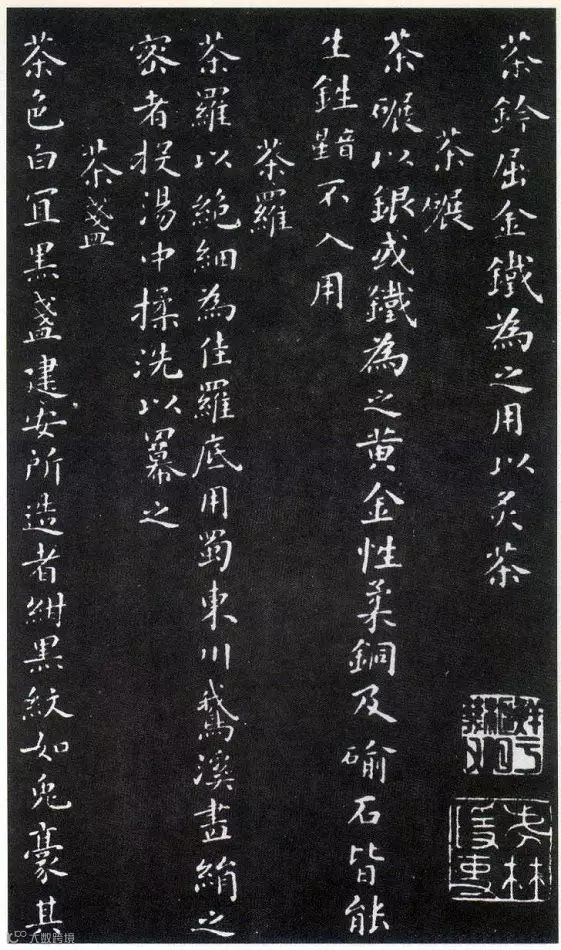 茶鈐屈金鐵為之用以炙茶
茶碾
茶碾以銀或鐵為之黄金性柔銅及碖石皆能
生鉎不入用
茶羅
茶羅以絶細為佳羅底用蜀東川鵞溪畫絹之
密者投湯中揉洗以羃之
茶盞
茶色白宜黒盞建安所造者紺黒紋如兎豪其
大數跨境